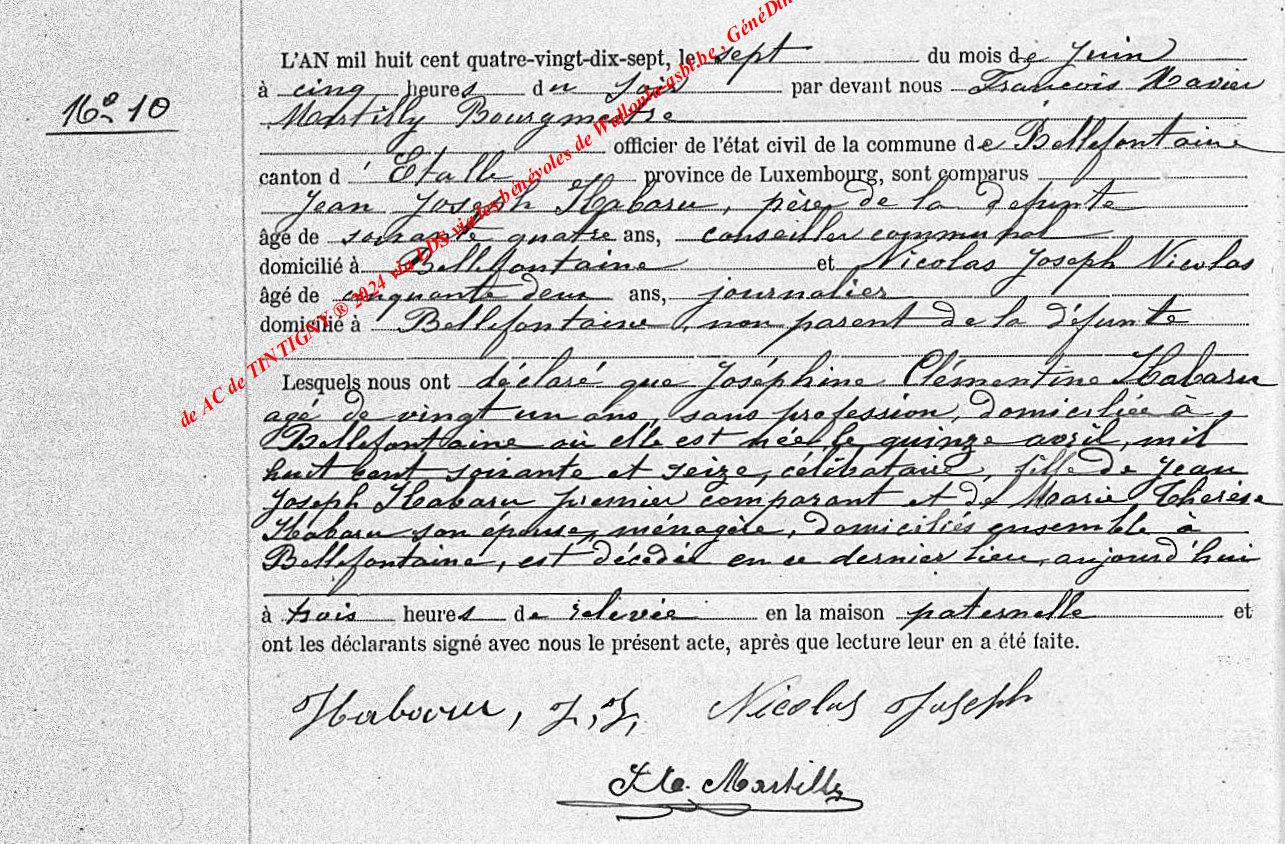 N° 10
L'AN mil huit cent quatre-vingt-dix-sept, le sept du mois de Juin
à cinq heures du soir par devant nous François Xavier
Martilly Bourgmestre
officier de l'état civil de la commune de Bellefontaine
canton d'Etalle province de Luxembourg, sont comparus
Jean Joseph Habaru, père de la défunte
âgé de soixante quatre ans, conseiller communal
domicilié à Bellefontaine et Nicolas Joseph Nicolas
âgé de cinquante deux ans, journalier
domicilié à Bellefontaine, non parent de la défunte
Lesquels nous ont déclaré que Joséphine Clémentine Habaru
agé de vingt un ans, sans profession, domiciliée à
Bellefontaine où elle est née, le quinze avril, mil
huit cent soixante et seize, célibataire, fille de Jean
Joseph Habaru premier comparant et de Marie Thérèse
Habaru son épouse, ménagère, domiciliés ensemble à
Bellefontaine, est décédée en ce dernier lieu, aujourd'hui
à trois heures de relevée en la maison paternelle et
ont les déclarants signé avec nous le présent acte, après que lecture leur en a été faite.
Habaru, J, J, Nicolas Joseph
F. X. Martilly
de AC de TINTIGNY ® 2024 via LDS via les bénévoles de Wallonia-asbl.be, GénéDin